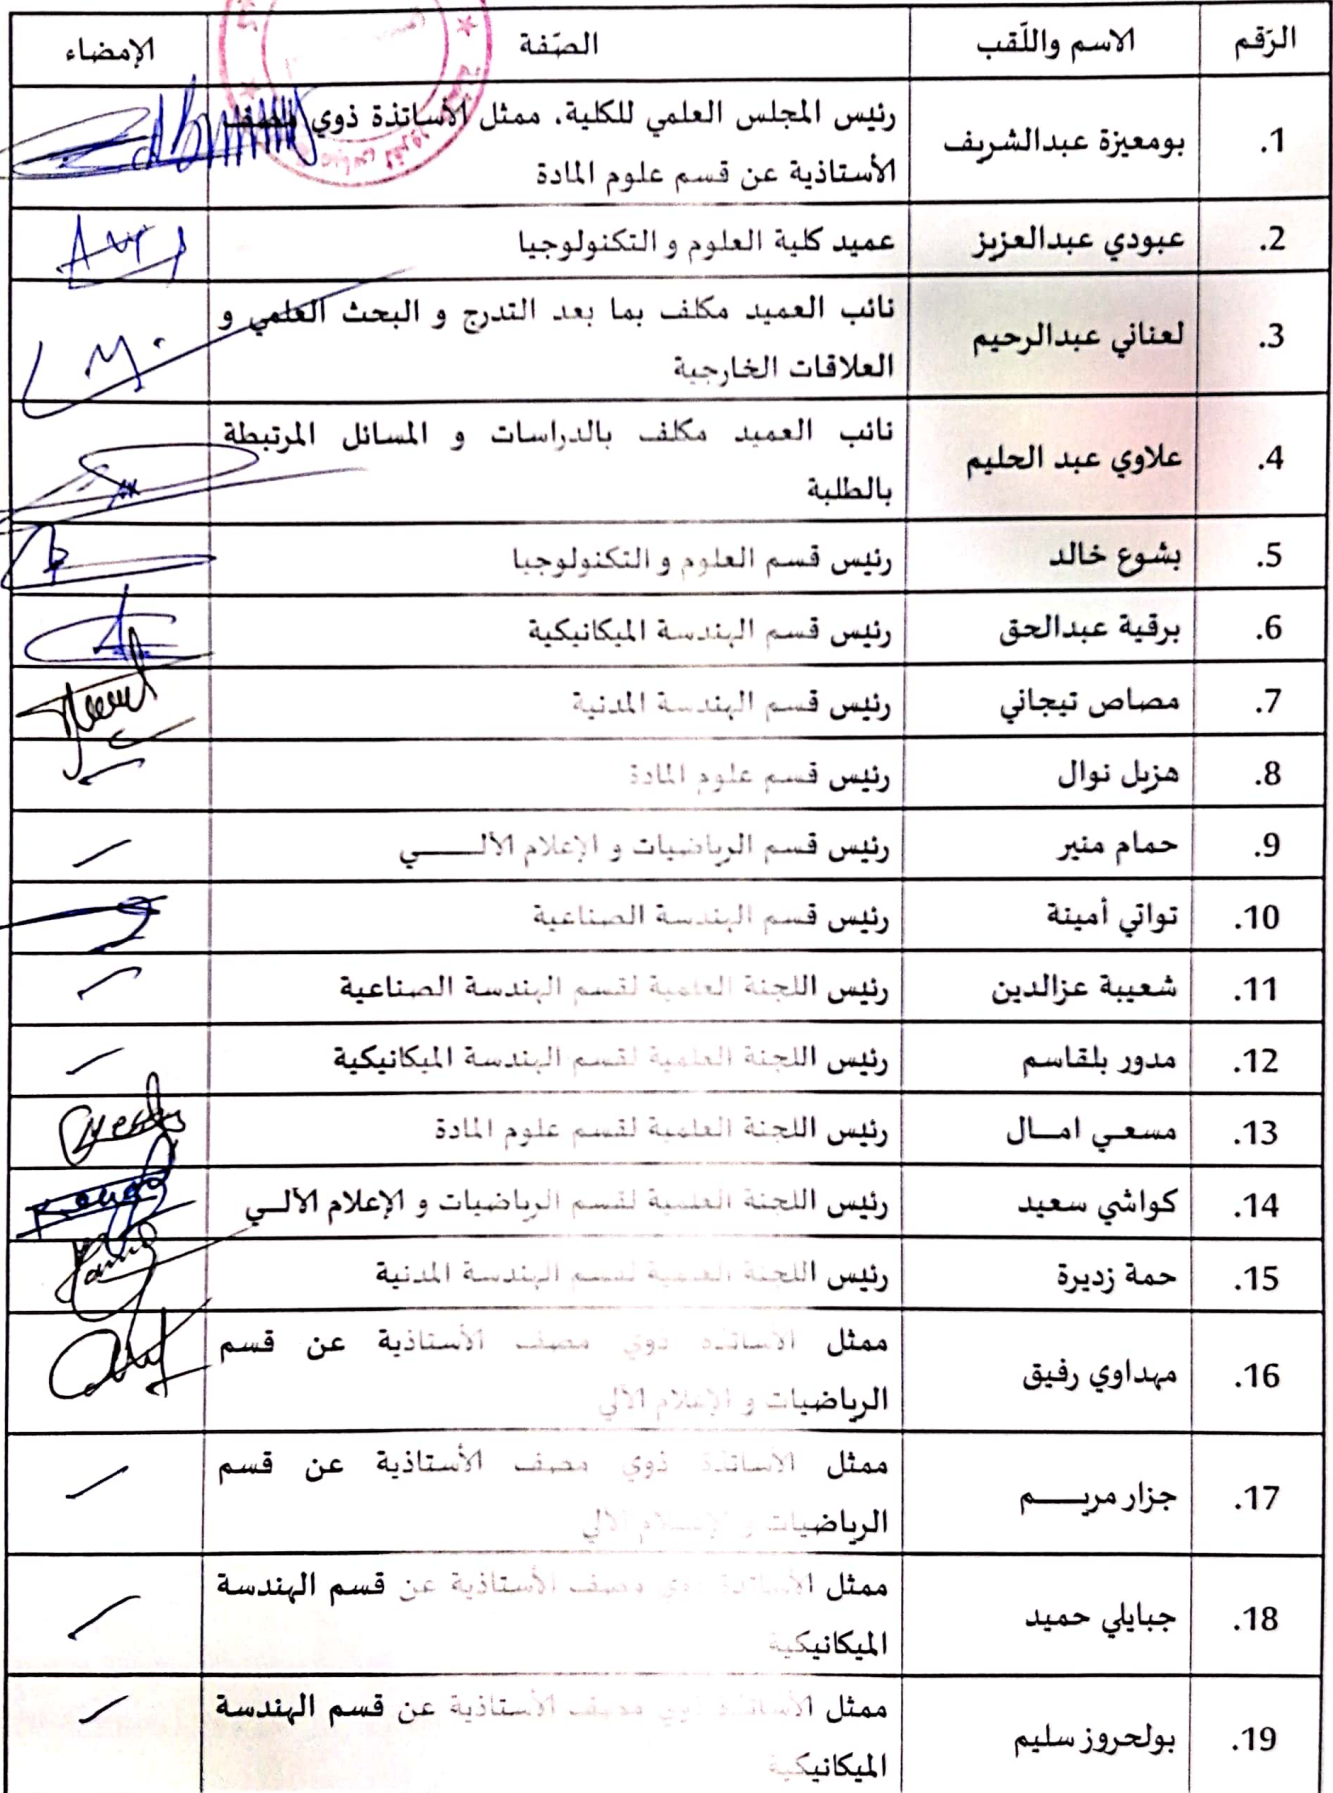 الرّقم الاسم واللّقب الصّفة الإمضاء
1. بومعيزة عبدالشريف رئيس المجلس العلمي للكلية، ممثل الأساتذة ذوي مصف
الأستاذية عن قسم علوم المادة
2. عبودي عبدالعزيز عميد كلية العلوم و التكنولوجيا
3. لعناني عبدالرحيم نائب العميد مكلف بما بعد التدرج و البحث العلمي و
العلاقات الخارجية
4. علاوي عبد الحليم نائب العميد مكلف بالدراسات و المسائل المرتبطة
بالطلبة
5. بشوع خالد رئيس قسم العلوم و التكنولوجيا
6. برقية عبدالحق رئيس قسم الهندسة الميكانيكية
7. مصاص تيجاني رئيس قسم الهندسة المدنية
8. هزيل نوال رئيس قسم علوم المادة
9. حمام منير رئيس قسم الرياضيات و الإعلام الألـــــي
10. تواتي أمينة رئيس قسم الهندسة الصناعية
11. شعيبة عزالدين رئيس اللجنة العلمية لقسم الهندسة الصناعية
12. مدور بلقاسم رئيس اللجنة العلمية لقسم الهندسة الميكانيكية
13. مسعـي امــال رئيس اللجنة العلمية لقسم علوم المادة
14. كواشي سعيد رئيس اللجنة العلمية لقسم الرياضيات و الإعلام الآلــي
15. حمة زديرة رئيس اللجنة العلمية لقسم الهندسة المدنية
16. مهداوي رفيق ممثل الأساتذة ذوي مصف الأستاذية عن قسم
الرياضيات و الإعلام الآلي
17. جزار مريـــــم ممثل الأساتذة ذوي مصف الأستاذية عن قسم
الرياضيات و الإعلام الآلي
18. جبايلي حميد ممثل الأساتذة ذوي مصف الأستاذية عن قسم الهندسة
الميكانيكية
19. بولحروز سليم ممثل الأساتذة ذوي مصف الأستاذية عن قسم الهندسة
الميكانيكية